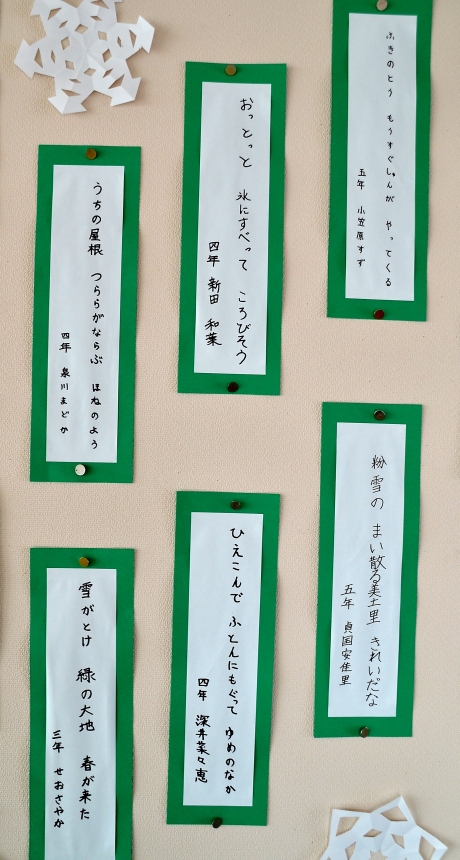 ふきのとう もうすぐしゅんが やってくる
五年 小笠原すず
おっとっと 氷にすべって ころびそう
四年 新田 和葉
うちの屋根 つららがならぶ ほねのよう
四年 泉川まどか
粉雪の まい散る美土里 きれいだな
五年 貞国安佳里
ひえこんで ふとんにもぐって ゆめのなか
四年 深井菜々恵
雪がとけ 緑の大地 春が来た
三年 せおさやか